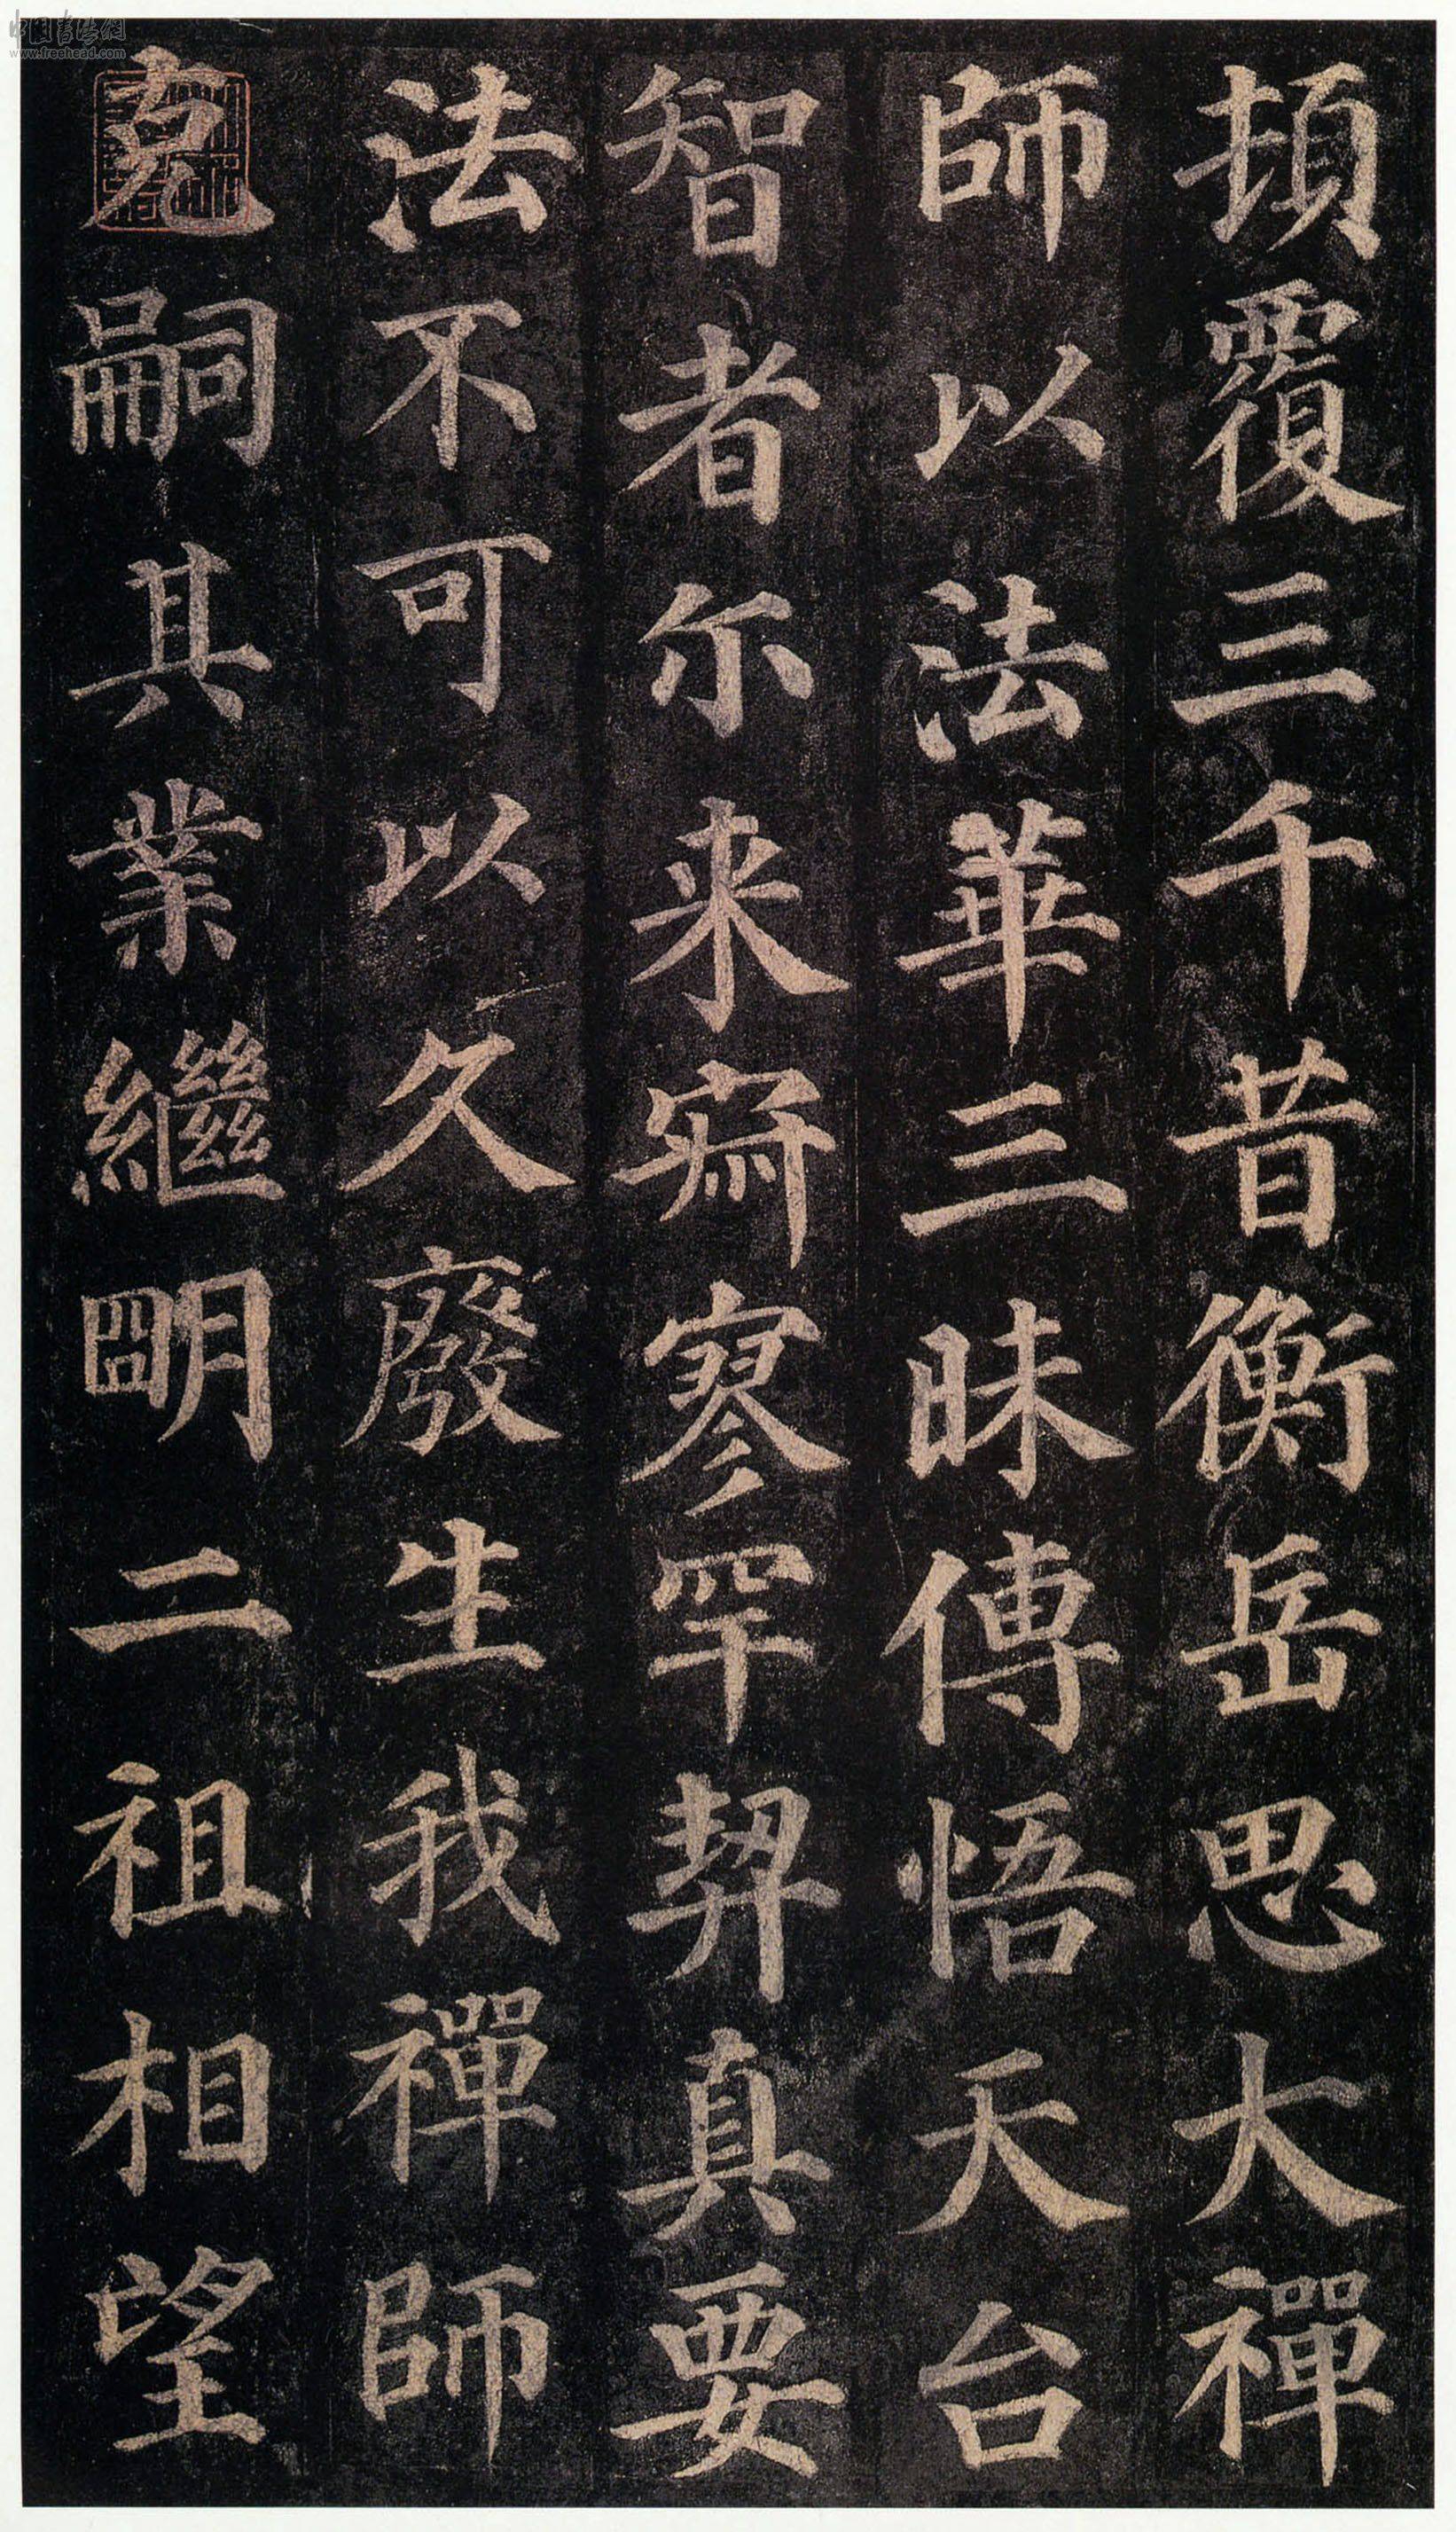 中国书法网
www.freehead.com
頃覆三千昔衡岳思大禪
師以法華三昧傳悟天台
智者尓来寂寥罕契真要
法不可以久廢生我禪師
克嗣其業繼明二祖相望